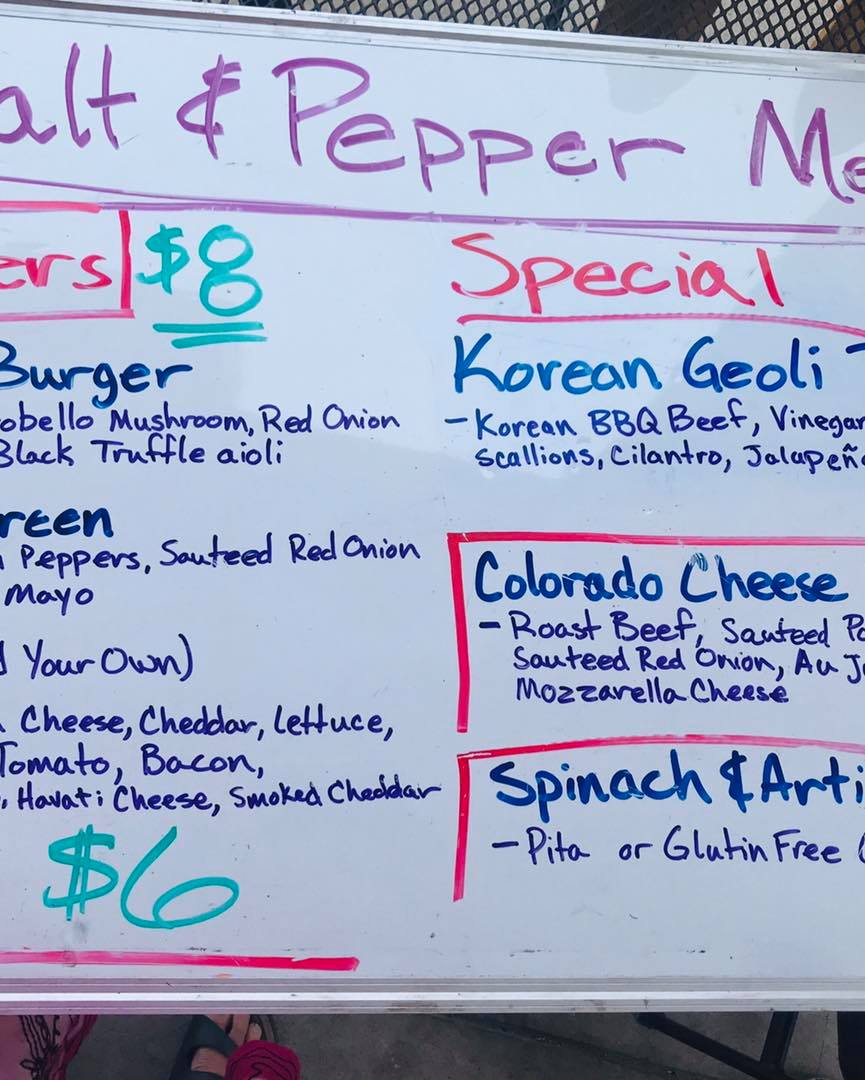 alt & Pepper Me
ers $8
Burger
obello Mushroom, Red Onion
Black Truffle aioli
reen
Peppers, Sauteed Red Onion
Mayo
d Your Own)
Cheese, Cheddar, Lettuce,
Tomato, Bacon,
Havati Cheese, Smoked Cheddar
$6
Special
Korean Geoli
- Korean BBQ Beef, Vinegar
scallions, Cilantro, Jalapeño
Colorado Cheese
- Roast Beef, Sauteed Po
Sauteed Red Onion, Au Ju
Mozzarella Cheese
Spinach & Arti
- Pita or Glutin Free (